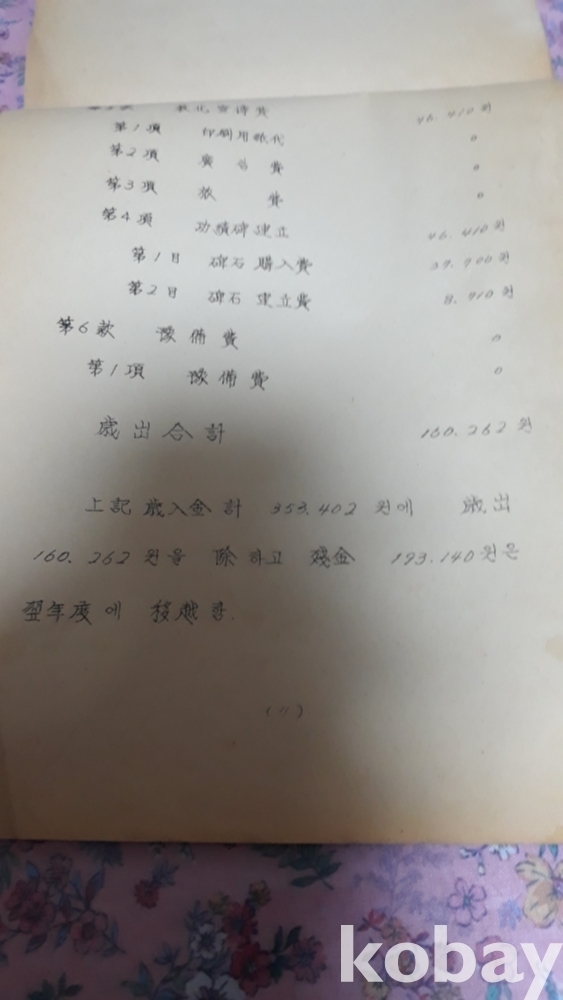 敎化宣傳費 46.410원
第1項 印刷用紙代 0
第2項 廣告費 0
第3項 旅費 0
第4項 功績碑建立 46.410원
第1目 碑石購入費 37.700원
第2目 碑石建立費 8.710원
第6款 豫備費 0
第1項 豫備費 0
歲出合計 160.262원
上記 歲入金計 353.402원에 歲出
160.262원을 除하고 殘金 193.140원은
翌年度에 移越함.
kobay